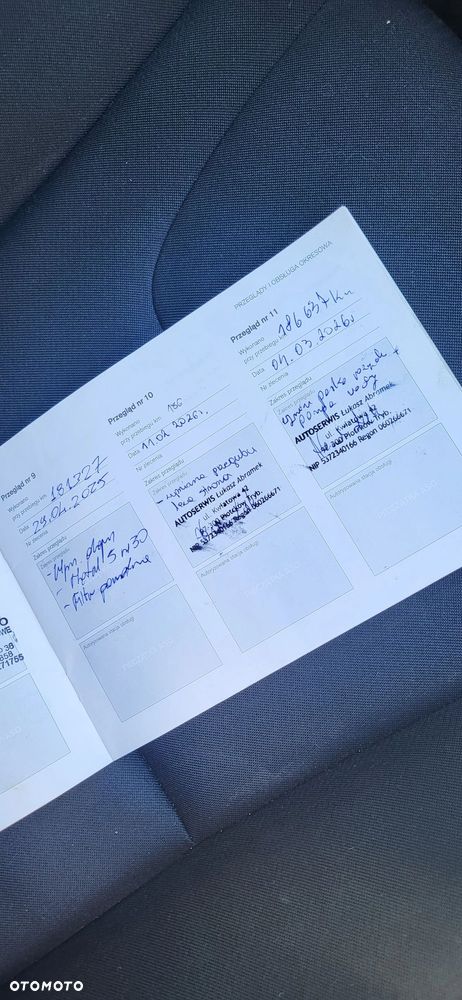 PRZEGLĄDY I OBSŁUGA OKRESOWA
Przegląd nr 9
przy przebiegu km 181327
Data 29.04.2025
Nr zlecenia
Zakres przeglądu
- Wym. olejem
- Motul 5W30
- Filtr
Autoryzowana stacja obsługi
Przegląd nr 10
Wykonano
przy przebiegu km 186
Data
Nr zlecenia
Zakres przeglądu
- wymiana przegubu
lewa strona
AUTOSERWIS Łukasz Abramek
ul. Kwiatowa 42
Piotrków Tryb.
NIP 5372340166 Regon 060266671
Autoryzowana stacja obsługi
Przegląd nr 11
Wykonano
przy przebiegu km 186637 Km
Data 04.03.2026r
Nr zlecenia
Zakres przeglądu
pompa wody
AUTOSERWIS Łukasz Abramek
ul. Kwiatowa 42
Piotrków Tryb.
NIP 5372340166 Regon 060266671
Autoryzowana stacja obsługi
OTOMOTO